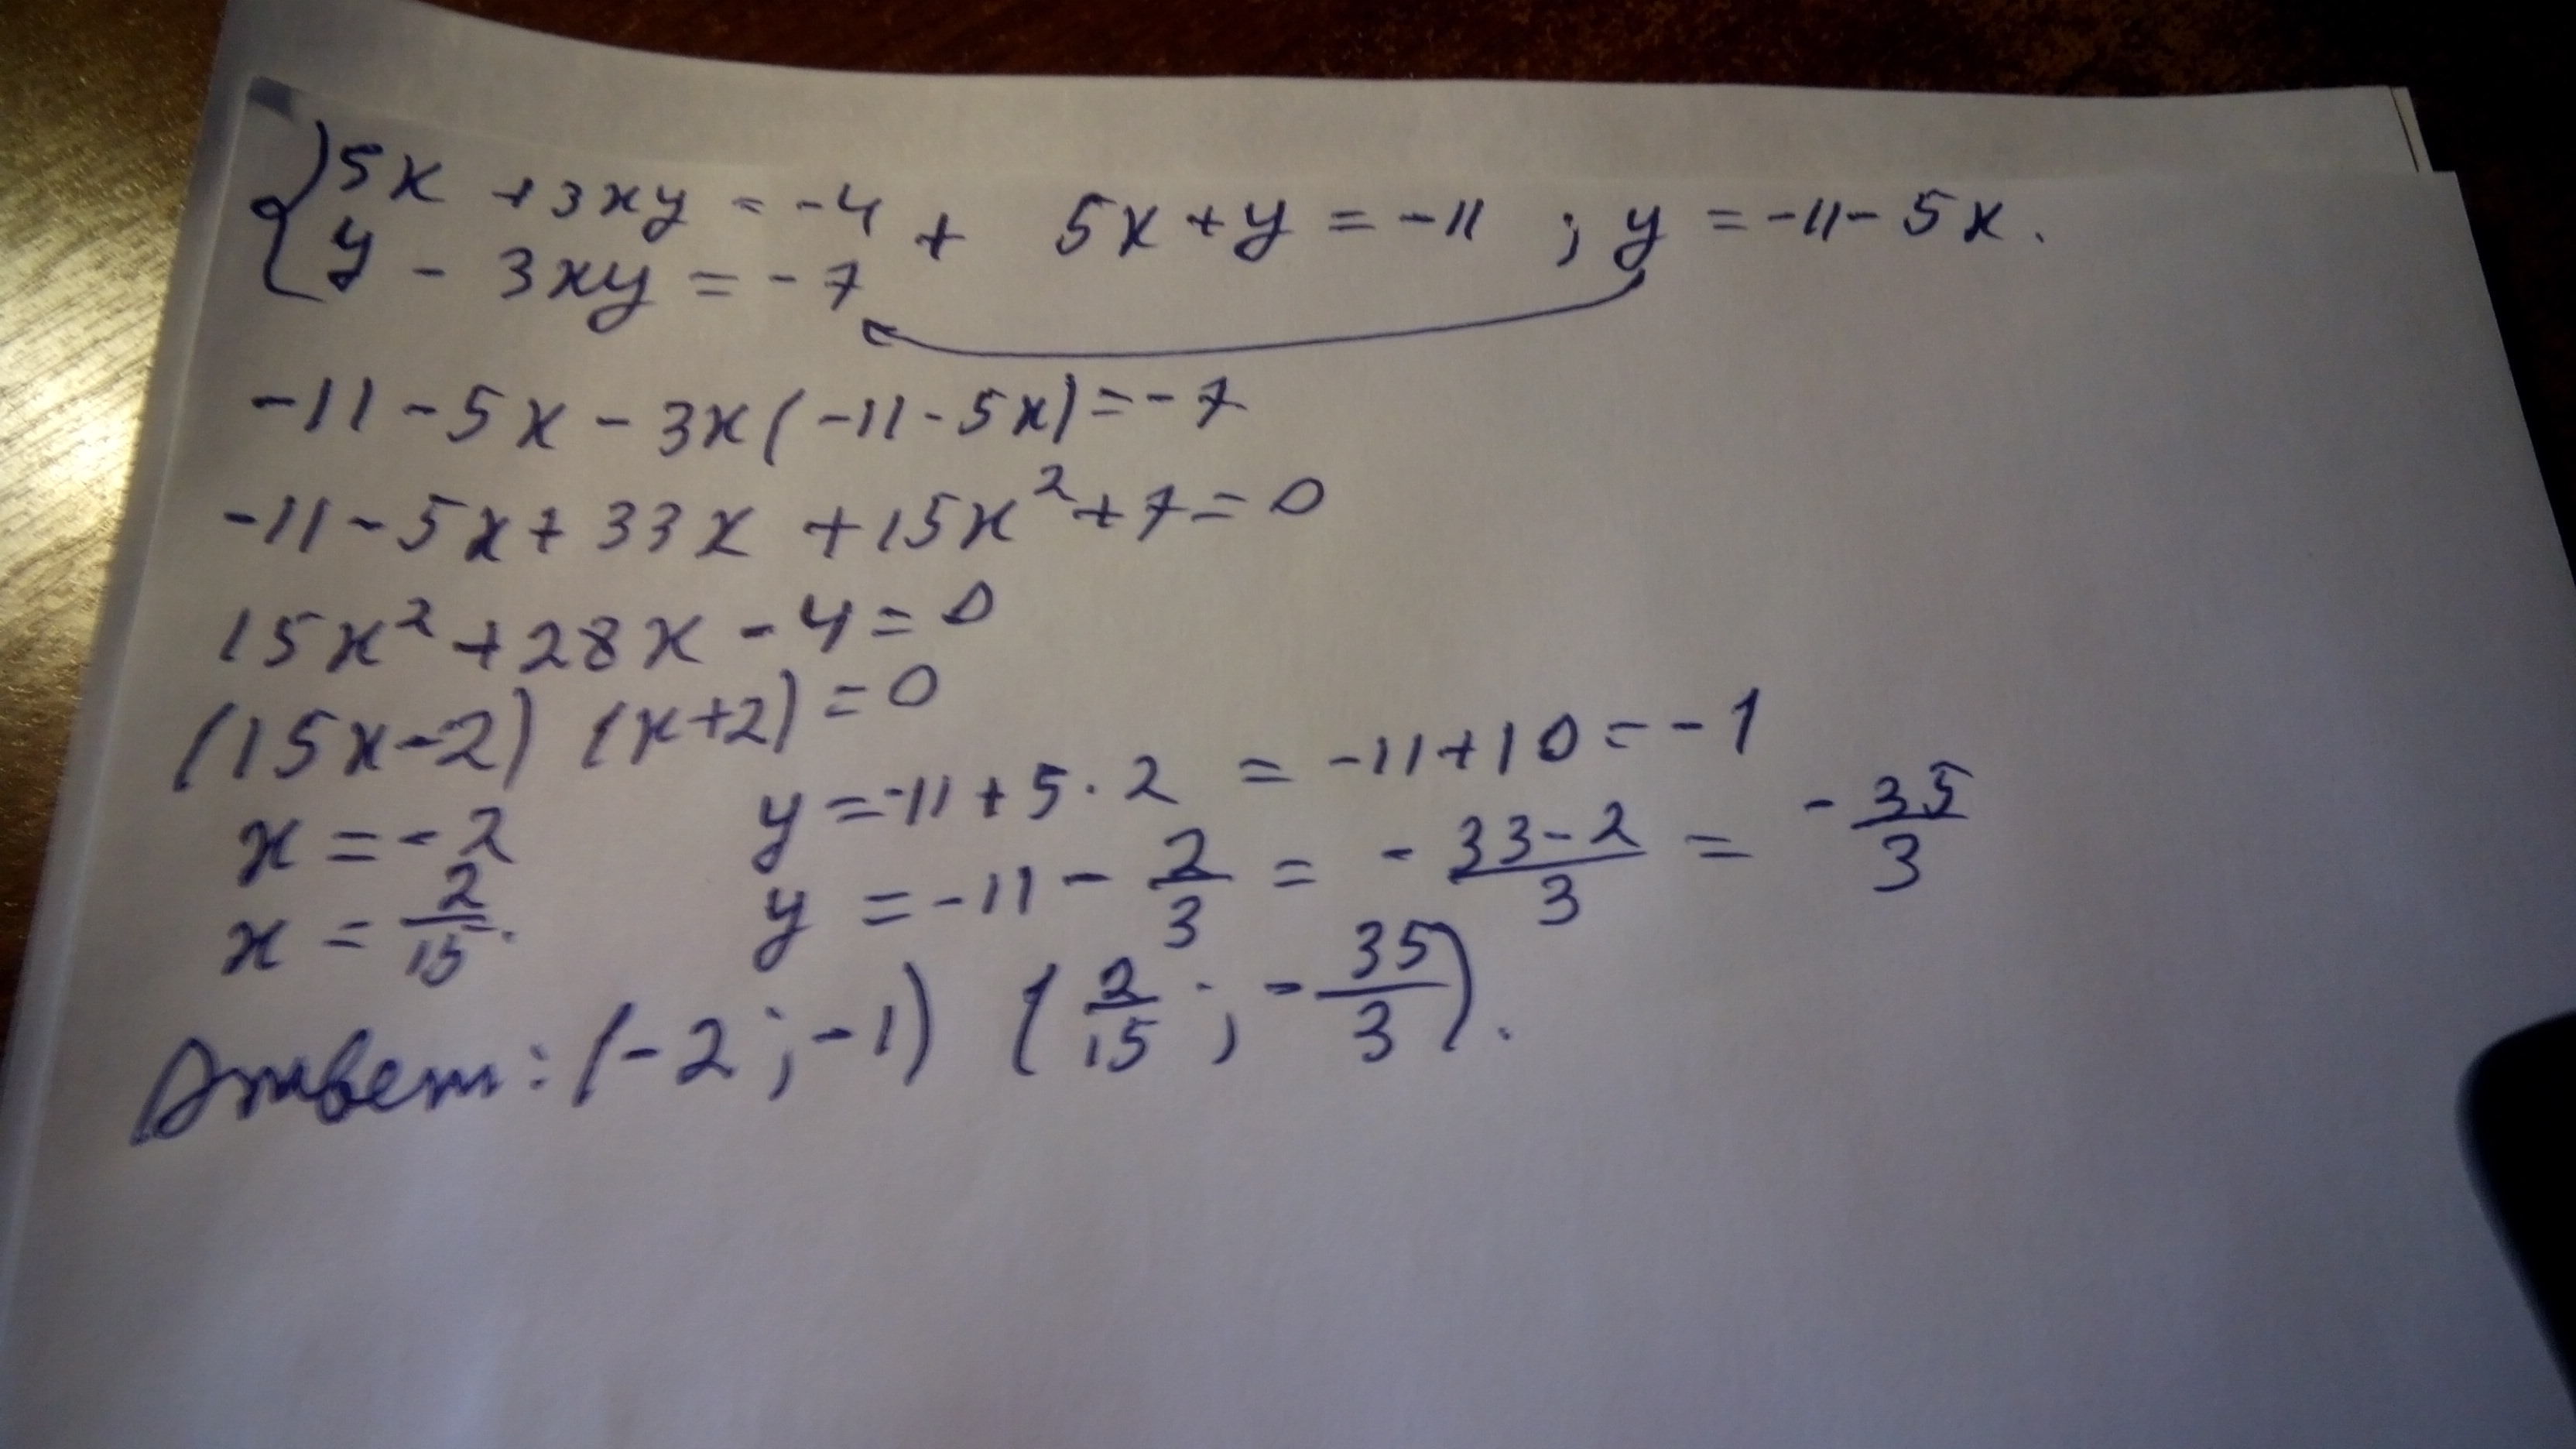 {5x + 3xy = -4 + 5x + y = -11 ; y = -11 - 5x.
y - 3xy = -7
-11 - 5x - 3x(-11 - 5x) = -7
-11 - 5x + 33x + 15x² + 7 = 0
15x² + 28x - 4 = 0
(15x - 2) (x + 2) = 0
x = -2 y = -11 + 5 · 2 = -11 + 10 = -1
x = 2/15. y = -11 - 2/3 = - 33-2/3 = - 35/3
Ответ: (-2 ; -1) (2/15 ; - 35/3).